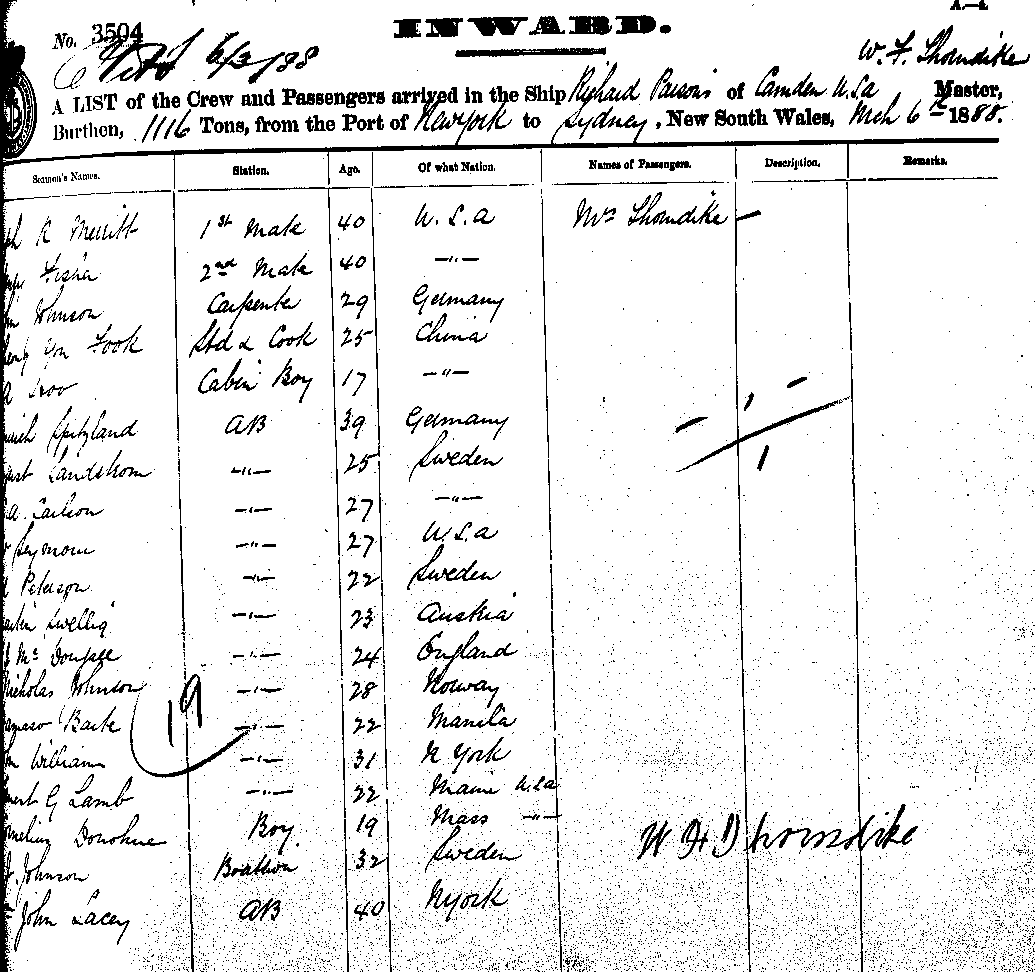 A—4
INWARD.
No. 3504
6/3/88
W. F. Thorndike
A LIST of the Crew and Passengers arrived in the Ship Richard Parsons of Camden U.S.a Master,
Burthen, 1116 Tons, from the Port of New York to Sydney, New South Wales, Mch 6th 1888.
Seamen's Names. Station. Age. Of what Nation. Names of Passengers. Description. Remarks.
R Merritt 1st Mate 40 U.S.a Mrs Thorndike —
Fisher 2nd Mate 40 —"—
Johnson Carpenter 29 Germany
You Fook Std & Cook 25 China
Cabin Boy 17 —"—
Spitzland AB 39 Germany
Landstrom —"— 25 Sweden
a. Carlson —"— 27 —"—
Seymour —"— 27 U.S.a
Peterson —"— 22 Sweden
—"— 23 Austria
Mc Dougall —"— 24 England
Nicholas Johnson —"— 28 Norway
—"— 22 Manila
William —"— 31 N York
G Lamb —"— 22 Maine U.S.a
Donohue Boy 19 Mass —"—
Johnson Boatswn 32 Sweden
John Lacey AB 40 NYork
19
W F Thorndike